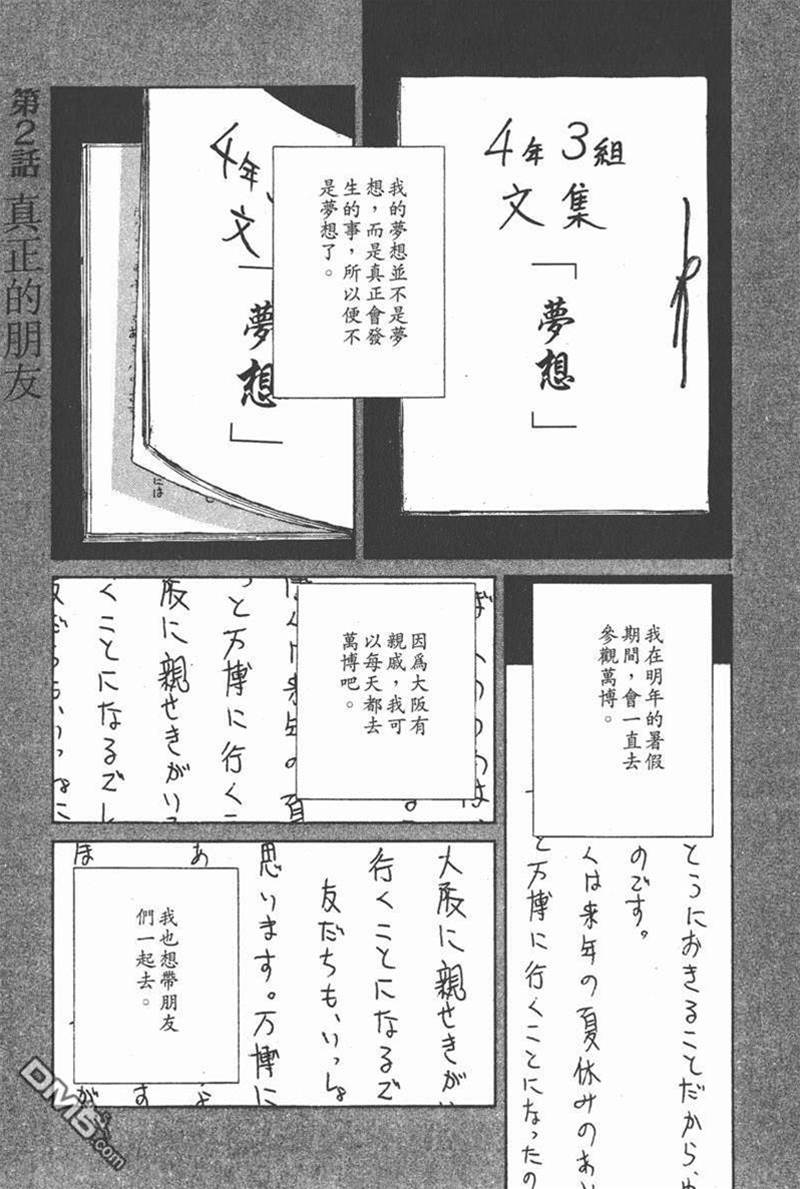 第2話 真正的朋友
4年3組
文集
「夢想」
4年
文
「夢想」
には
我的夢想並不是夢
想，而是真正會發
生的事，所以便不
是夢想了。
我在明年的暑假
期間，會一直去
參觀萬博。
とうにおきることだから、
のです。
くは来年の夏休みのあい
と万博に行くことになったの
因爲大阪有
親戚，我可
以每天都去
萬博吧。
は来年の夏
っと万博に行くこ
阪に親せきがい
くことになるでし
友だちも、いっしょに
大阪に親せきがい
行くことになるで
友だちも、いっしょ
思います。万博に
あ
ほ
我也想帶朋友
們一起去。
す
が
DM5.com